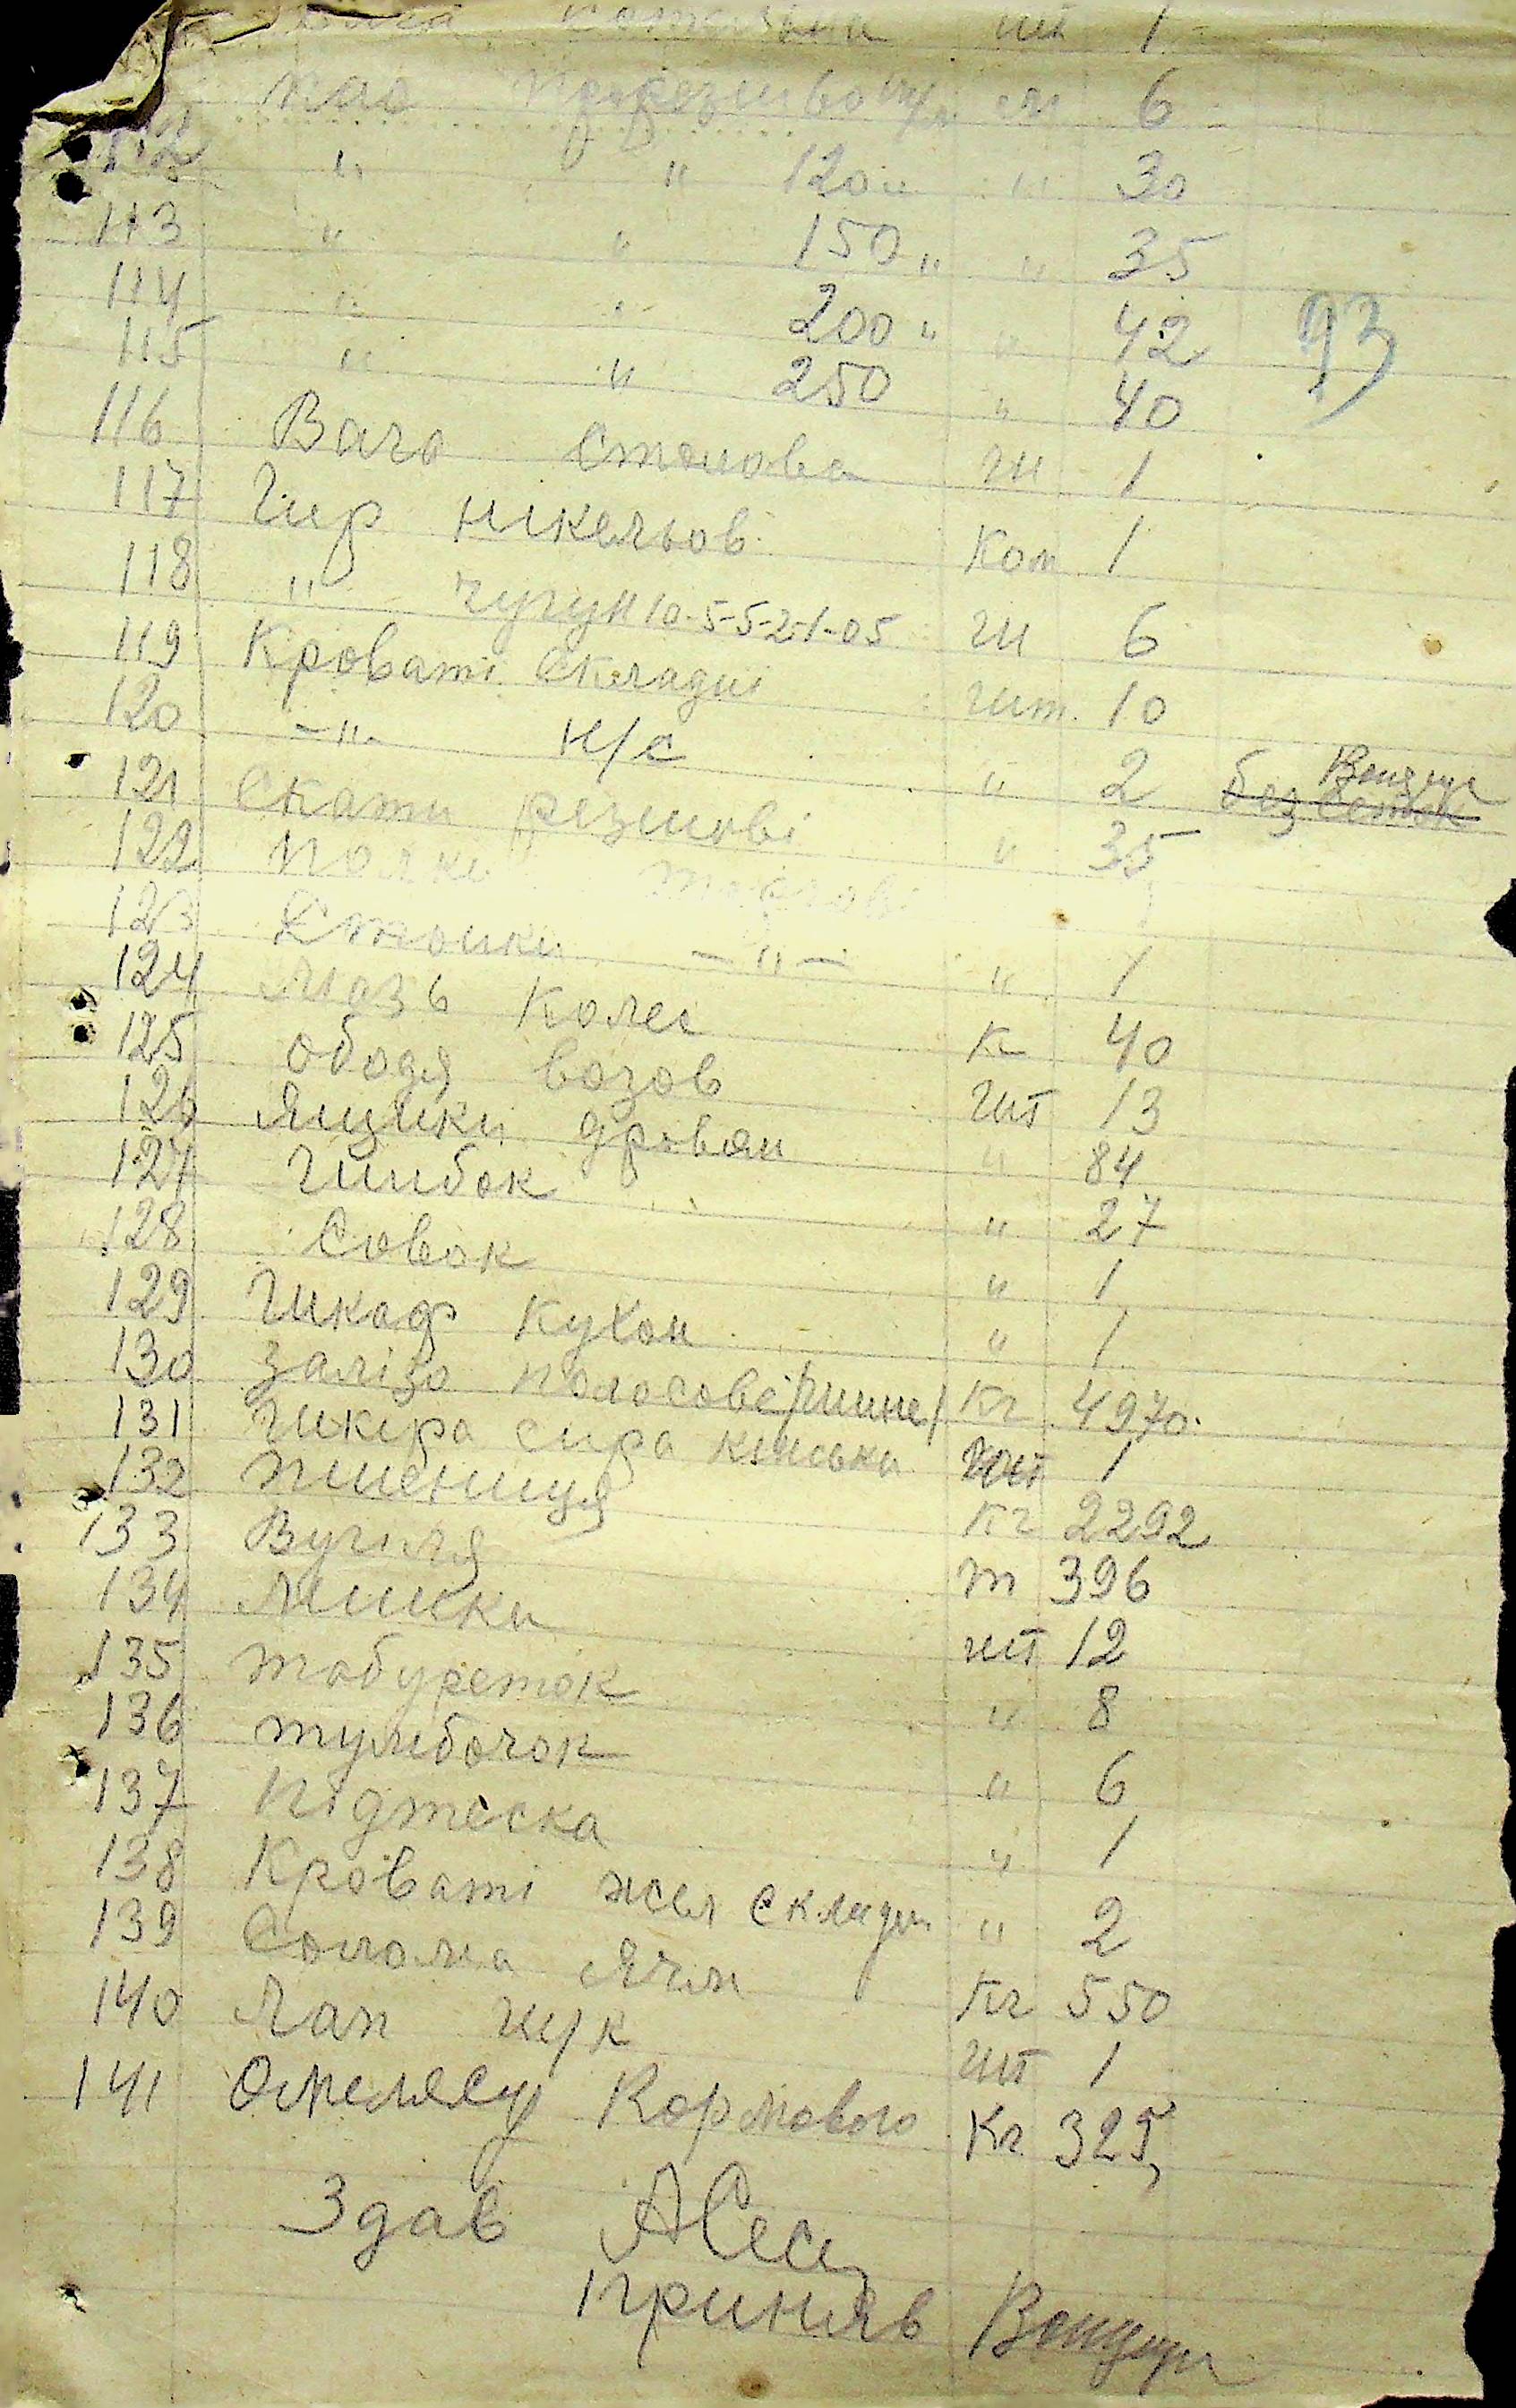 шт 1
пас прорезинво м 6
112 " " 120 " " 30
113 " " 150 " " 35
114 " " 200 " " 42
93
115 " " 250 " 40
116 Вага Стонова Ш 1
117 Гир никельов Ком 1
118 " чугун 10-5-5-2-1-05 Ш 6
119 Кроваті Складні Шт. 10
120 -"- Н/С " 2 без сеток
121 Скати резинові " 35
122 Полки
123 Стойки -"- " 1
124 Мазь Колес К 40
125 Ободя возов Шт 13
126 Ящики дровян " 84
127 Шибок " 27
128 Совок " 1
129 Шкаф Кухон " 1
130 Залізо полосове/шинне/ Кг 4970.
131 Шкіра сира кінська Шт 1
132 Пшениця Кг 2292
133 Вугіля т 396
134 Мишки шт 12
135 Табуреток " 8
136 тумбочок " 6
137 Підтеска " 1
138 Кроваті жел складн " 2
139 Солома Ячм Кг 550
140 Лап ш/к Шт 1
141 Омелясу Кормового Кг 325,
Здав
приняв